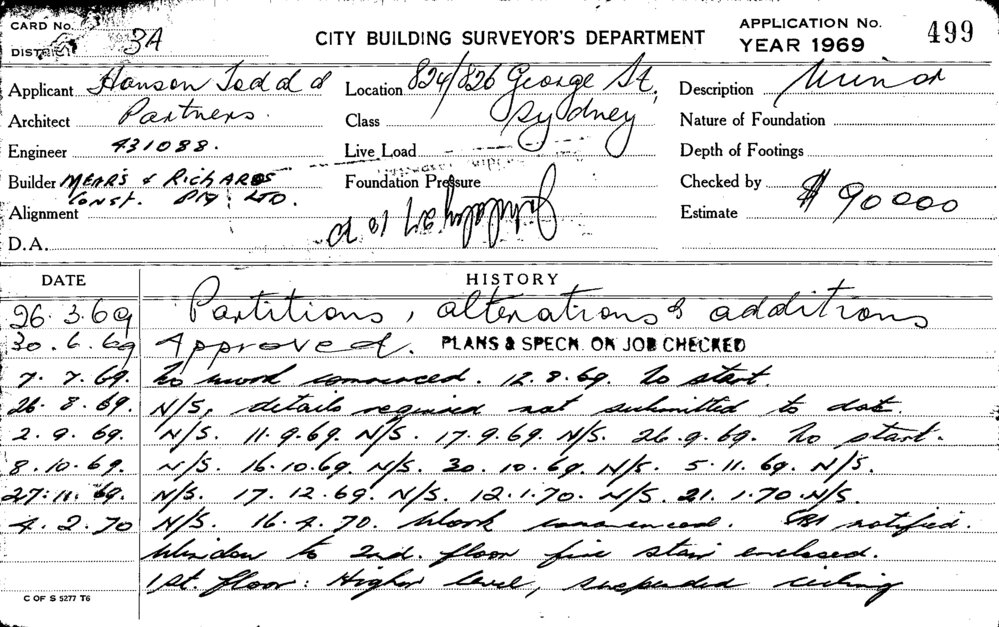 CARD No.
DISTRICT 3A
CITY BUILDING SURVEYOR'S DEPARTMENT
APPLICATION No. 499
YEAR 1969
Applicant Hanson Todd &
Location 824/826 George St,
Description Minor
Architect Partners.
Class Sydney
Nature of Foundation
Engineer 431088.
Live Load
Depth of Footings
Builder MEARS & RICHARDS
Foundation Pressure
Checked by
CONST. PTY. LTD.
Alignment
Estimate $90000
D.A.
DATE HISTORY
26.3.69 Partitions, alterations & additions
30.6.69 Approved. PLANS & SPECN. ON JOB CHECKED
7.7.69. No work commenced. 12.8.69. No start.
26.8.69. N/S, details required not submitted to date.
2.9.69. N/S. 11.9.69. N/S. 17.9.69. N/S. 26.9.69. No start.
8.10.69. N/S. 16.10.69. N/S. 30.10.69. N/S. 5.11.69. N/S.
27.11.69. N/S. 17.12.69. N/S. 12.1.70. N/S. 21.1.70. N/S.
4.2.70 N/S. 16.4.70. Work commenced. notified.
Window to 2nd. floor fire stair enclosed.
1st. floor: Higher level, suspended ceiling
C OF S 5277 T6